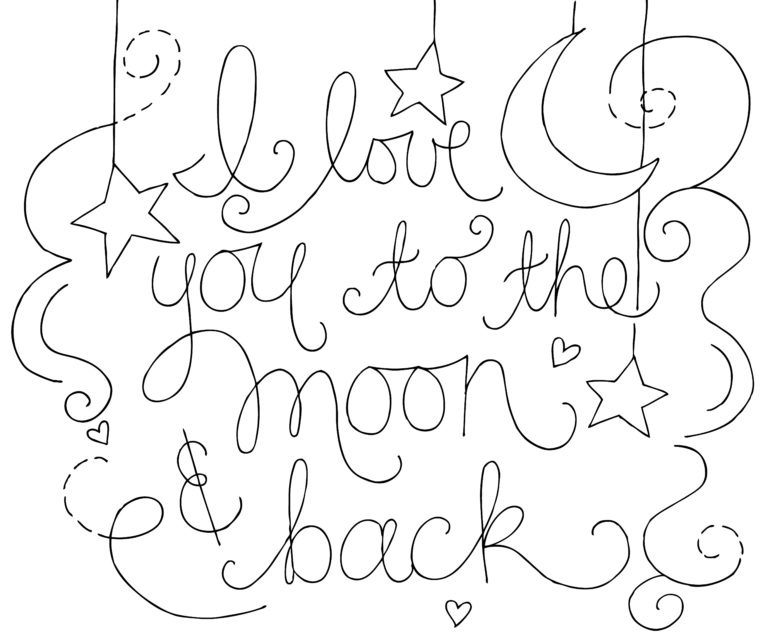 I love
you to the
moon
& back